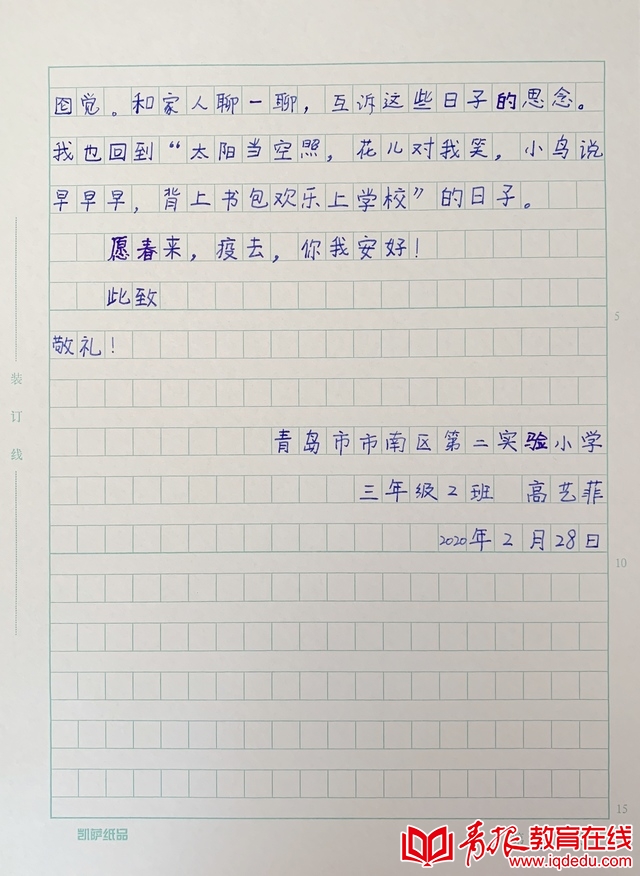 囵觉。和家人聊一聊，互诉这些日子的思念。
我也回到“太阳当空照，花儿对我笑，小鸟说
早早早，背上书包欢乐上学校”的日子。
愿春来，疫去，你我安好！
此致
敬礼！
青岛市市南区第二实验小学
三年级2班 高艺菲
2020年2月28日
装订线
5
10
15
凯萨纸品
青报教育在线
www.iqdedu.com